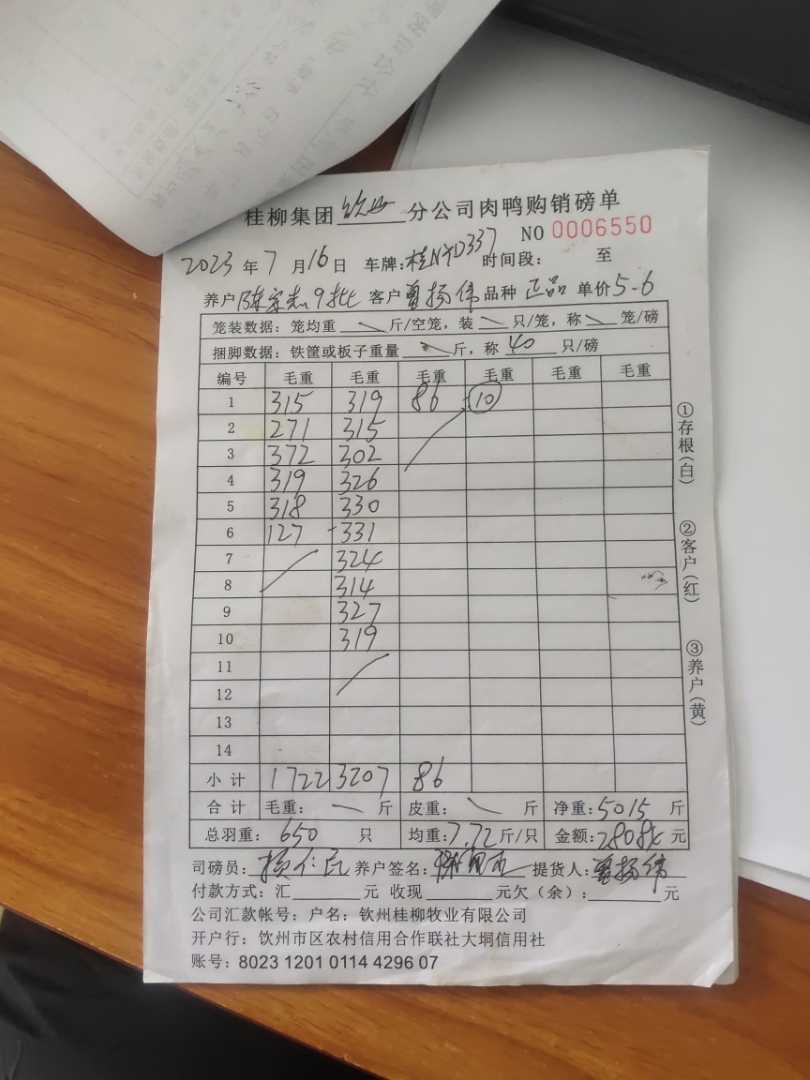 桂柳集团钦州分公司肉鸭购销磅单
NO 0006550
2023年7月16日 车牌:桂N 337 时间段: 至
养户 9批 客户 曾扬伟 品种 正品 单价5.6
笼装数据: 笼均重 斤/空笼, 装 只/笼, 称 笼/磅
捆脚数据: 铁筐或板子重量 斤, 称 40 只/磅
编号 毛重 毛重 毛重 毛重 毛重 毛重
1 315 319 86 10
2 271 315
3 372 302
4 319 326
5 318 330
6 127 331
7 324
8 314
9 327
10 319
11
12
13
14
小计 1722 3207 86
合计 毛重: 斤 皮重: 斤 净重: 5015 斤
总羽重: 650 只 均重: 7.72 斤/只 金额: 28084 元
司磅员: 养户签名: 提货人: 曾扬伟
付款方式: 汇 元 收现 元欠(余): 元
公司汇款帐号: 户名: 钦州桂柳牧业有限公司
开户行: 饮州市区农村信用合作联社大垌信用社
账号: 8023 1201 0114 4296 07
①存根(白)
②客户(红)
③养户(黄)